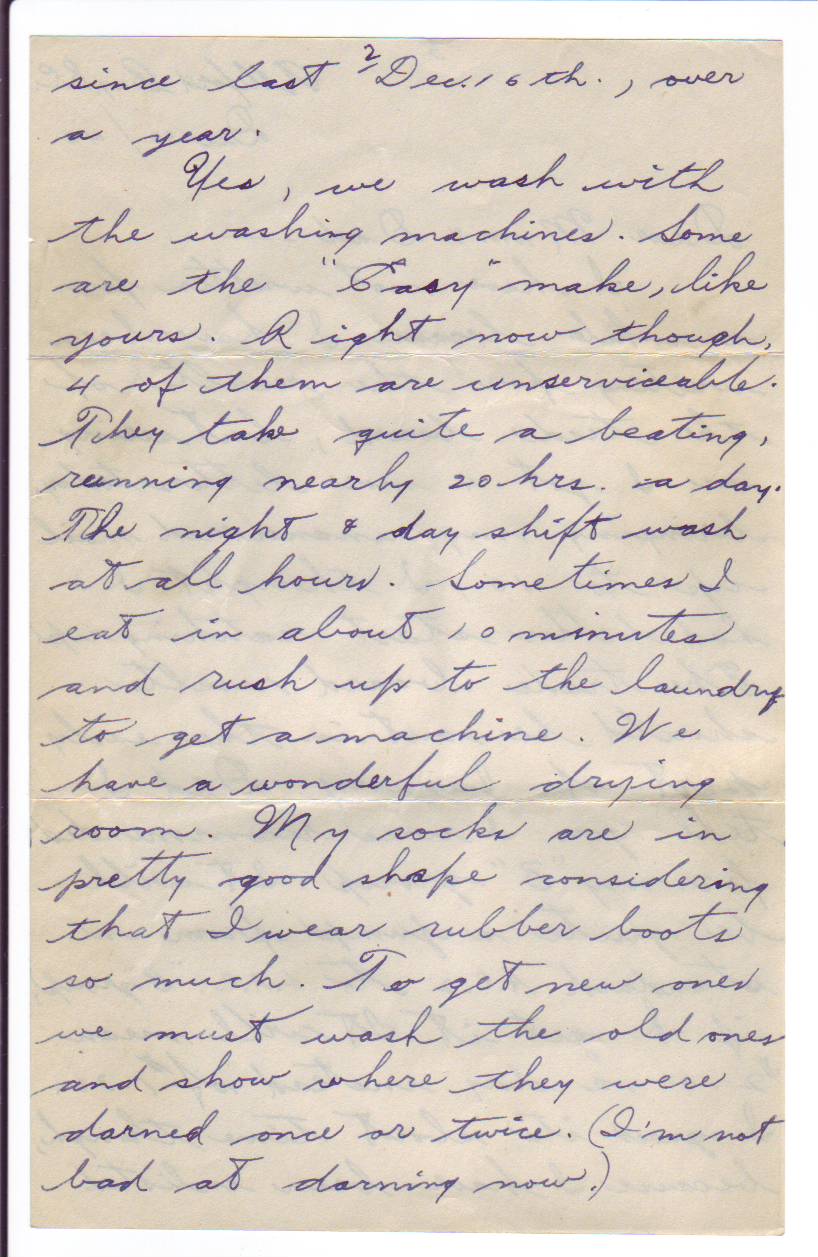 2
since last Dec. 16th., over
a year.
Yes, we wash with
the washing machines. Some
are the "Easy" make, like
yours. Right now though,
4 of them are unserviceable.
They take quite a beating,
running nearly 20 hrs. a day.
The night & day shift wash
at all hours. Sometimes I
eat in about 10 minutes
and rush up to the laundry
to get a machine. We
have a wonderful drying
room. My socks are in
pretty good shape considering
that I wear rubber boots
so much. To get new ones
we must wash the old ones
and show where they were
darned once or twice. (I'm not
bad at darning now.)